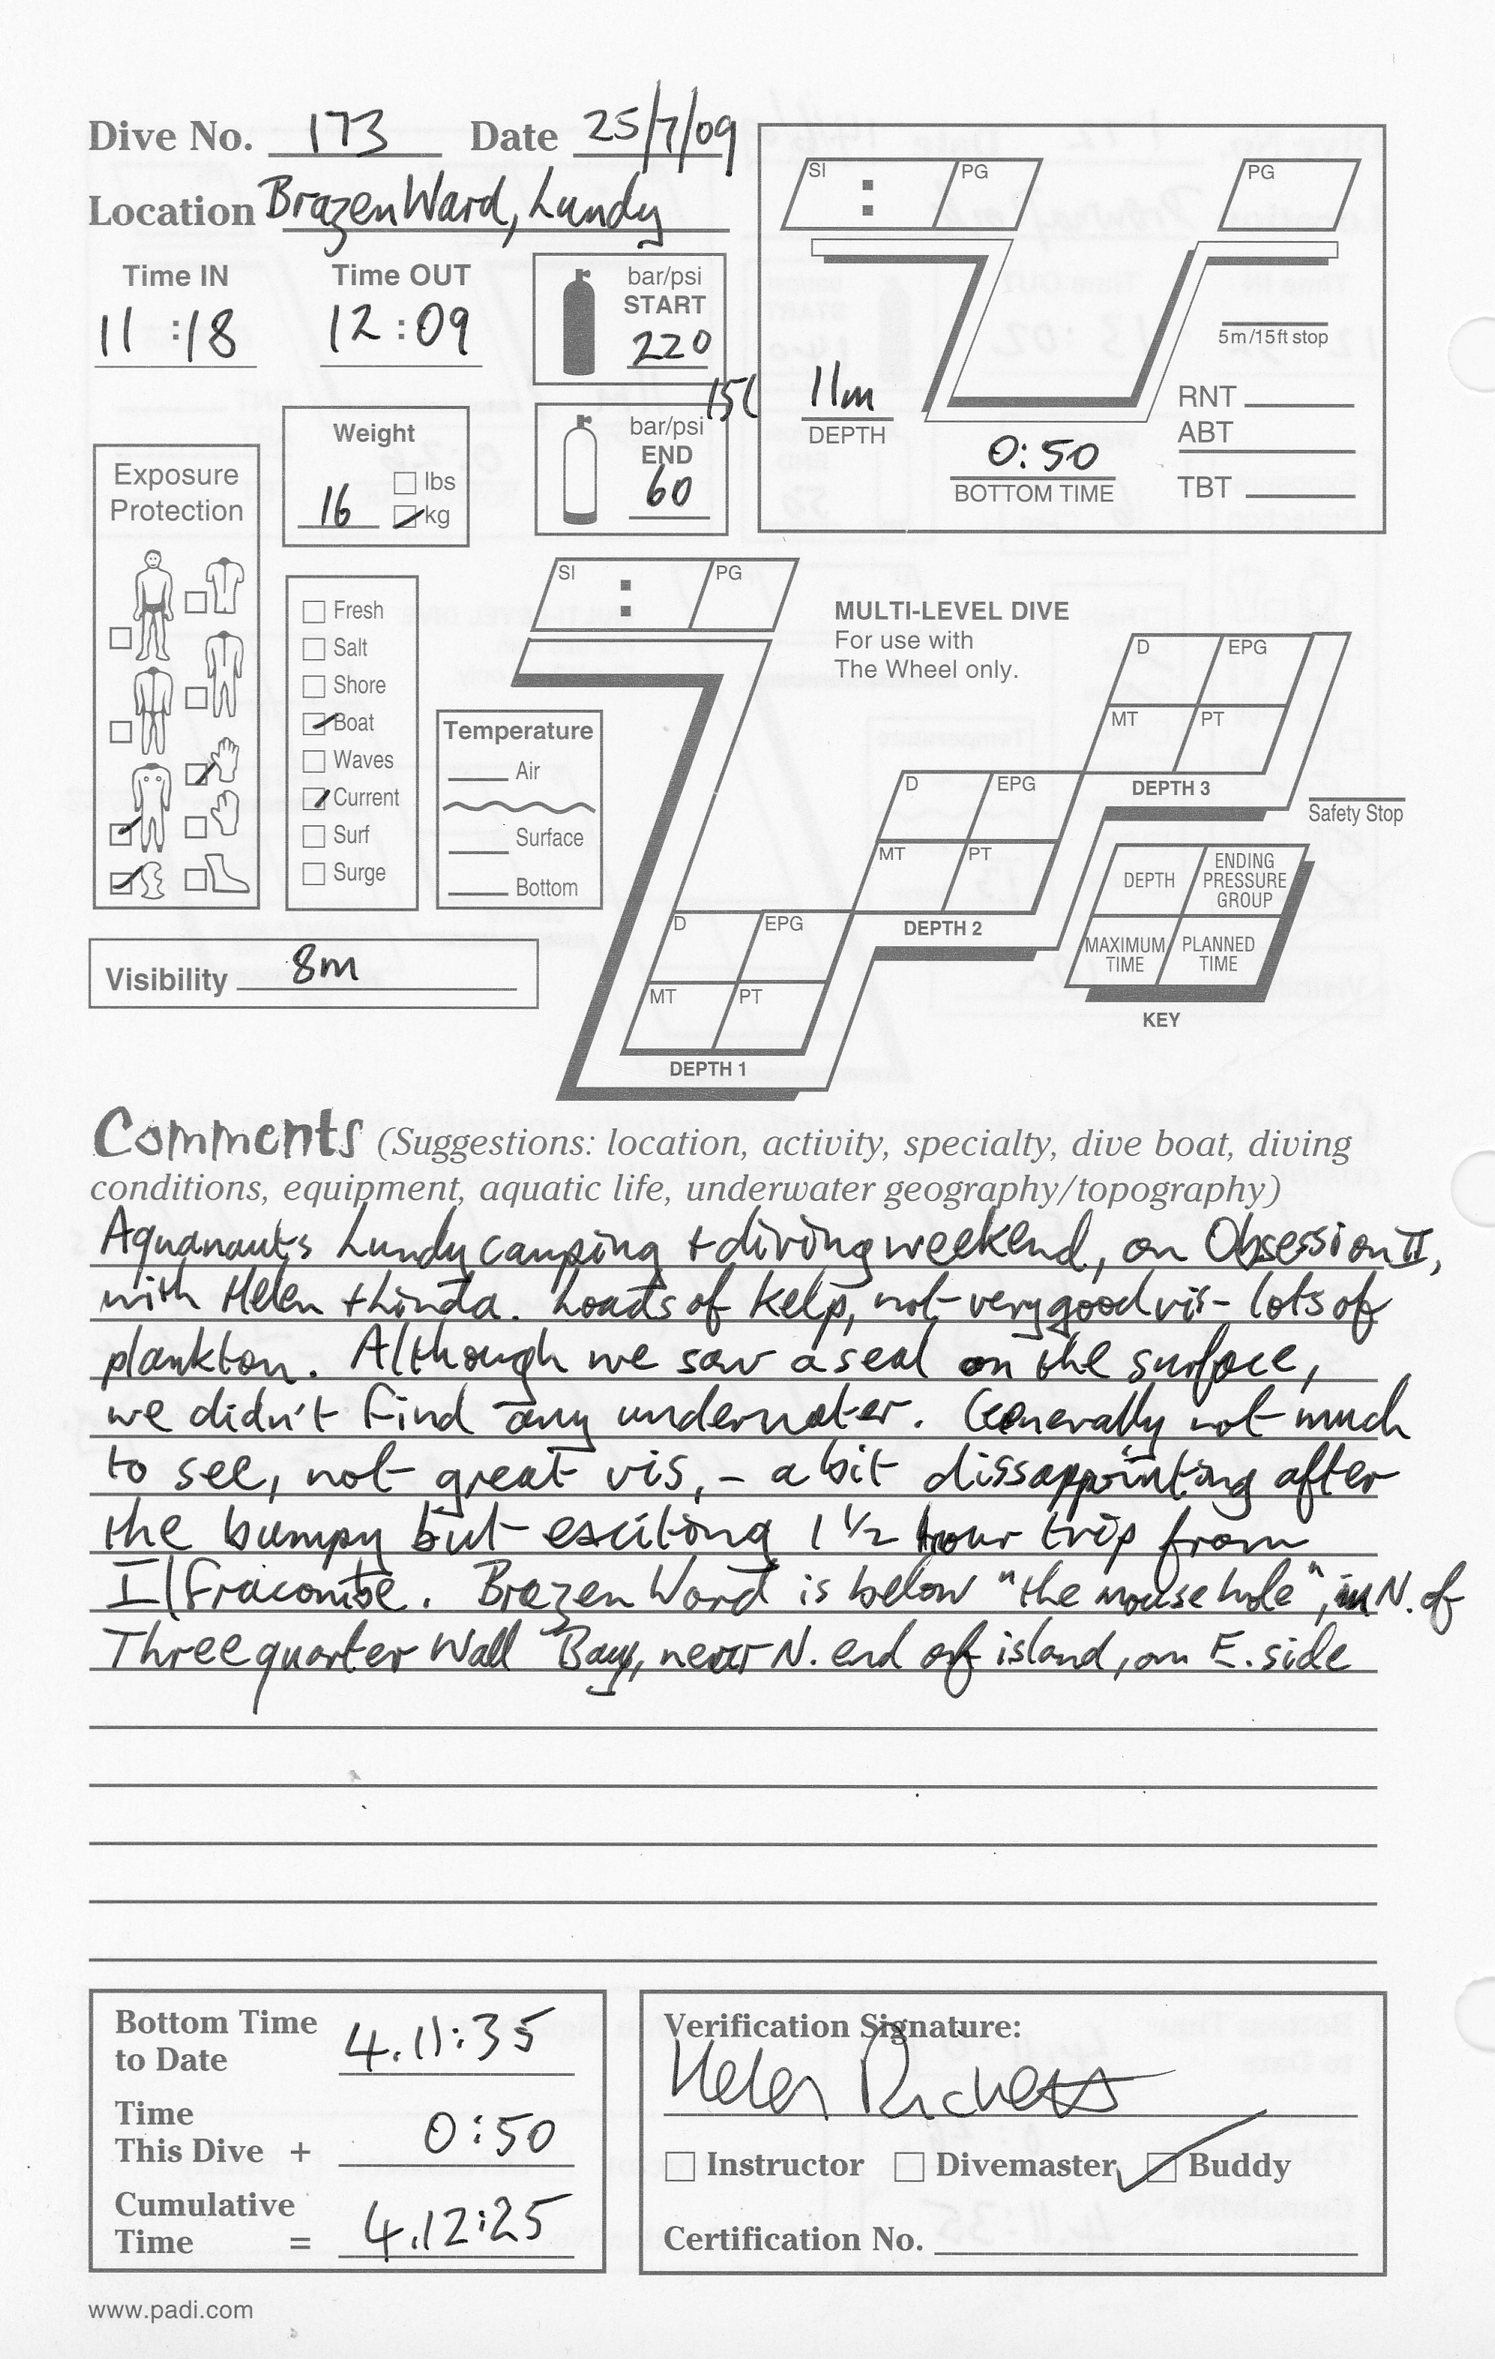 Dive No. 173 Date 25/7/09
Location Brazen Ward, Lundy
Time IN
11:18
Time OUT
12:09
bar/psi
START
220
15l
bar/psi
END
60
SI : PG
PG
5m/15ft stop
11m
DEPTH
0:50
BOTTOM TIME
RNT
ABT
TBT
Weight
lbs
16 kg
Exposure
Protection
Fresh
Salt
Shore
Boat
Waves
Current
Surf
Surge
Temperature
Air
Surface
Bottom
Visibility 8m
SI : PG
MULTI-LEVEL DIVE
For use with
The Wheel only.
D EPG
MT PT
DEPTH 1
D EPG
MT PT
DEPTH 2
D EPG
MT PT
DEPTH 3
Safety Stop
DEPTH
ENDING
PRESSURE
GROUP
MAXIMUM
TIME
PLANNED
TIME
KEY
Comments (Suggestions: location, activity, specialty, dive boat, diving
conditions, equipment, aquatic life, underwater geography/topography)
Aquanauts Lundy camping + diving weekend, on Obsession II,
with Helen + Linda. Loads of kelp, not very good vis - lots of
plankton. Although we saw a seal on the surface,
we didn't find any underwater. Generally not much
to see, not great vis, - a bit dissappointing after
the bumpy but exciting 1 1/2 hour trip from
Ilfracombe. Brazen Ward is below "the mouse hole", N. of
Threequarter Wall Bay, near N. end of island, on E. side
Bottom Time
to Date 4.11:35
Time
This Dive + 0:50
Cumulative
Time = 4.12:25
Verification Signature:
Helen Ricketts
Instructor Divemaster Buddy
Certification No.
www.padi.com